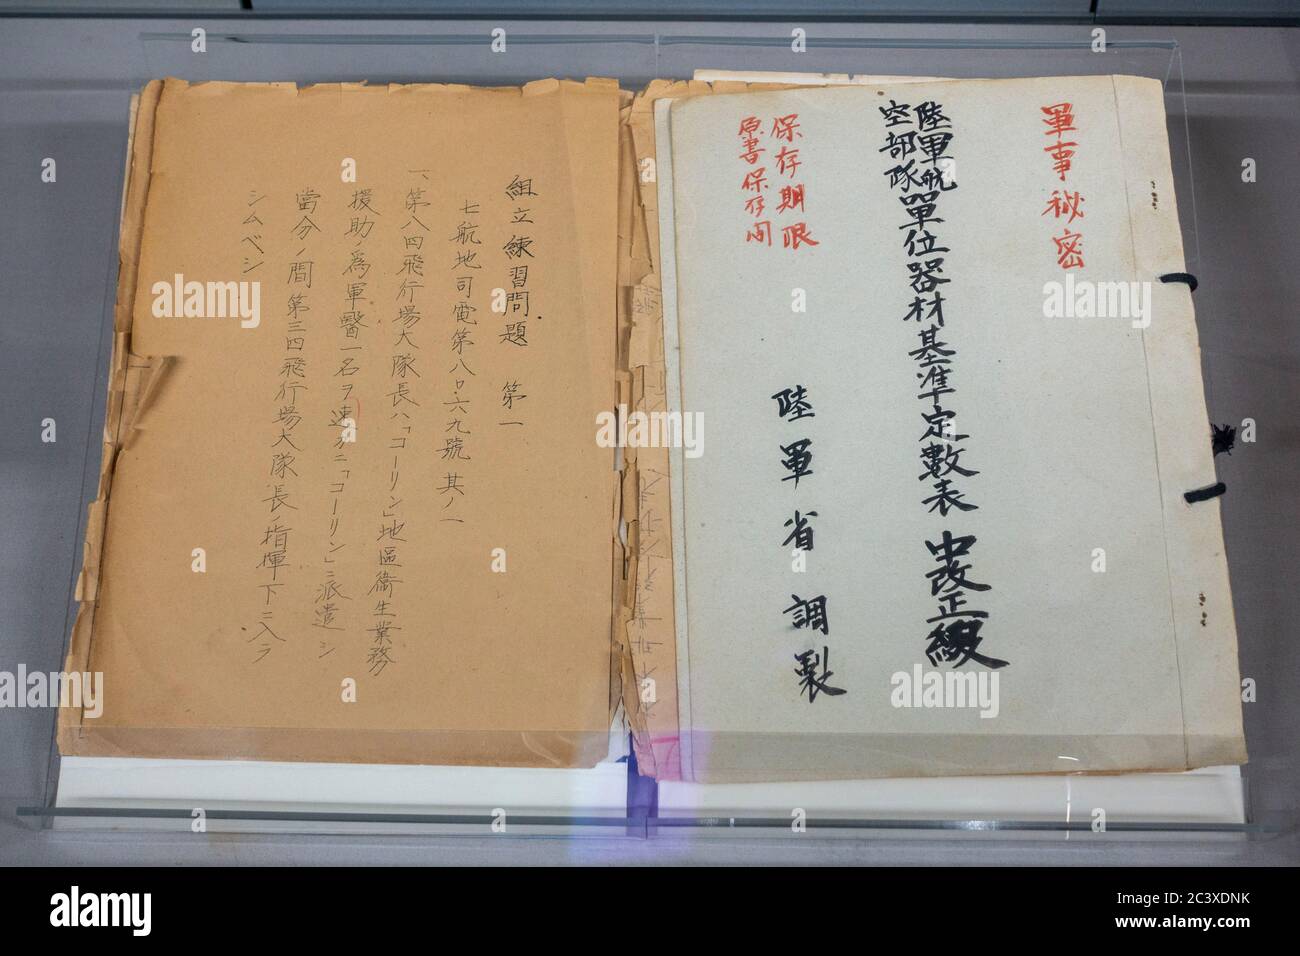 軍事秘密
陸軍航空部隊單位器材基準定數表 中改正綴
保存期限
原書保存間
陸軍省調製
組立練習問題 第一
七航地司電第八〇・六九號其ノ一
一、第八四飛行場大隊長ハ「コーリン」地區衞生業務
援助ノ爲軍醫一名ヲ速カニ「コーリン」ニ派遣シ
當分ノ間第三四飛行場大隊長ノ指揮下ニ入ラ
シムベシ
alamy
Image ID: 2C3XDNK
www.alamy.com